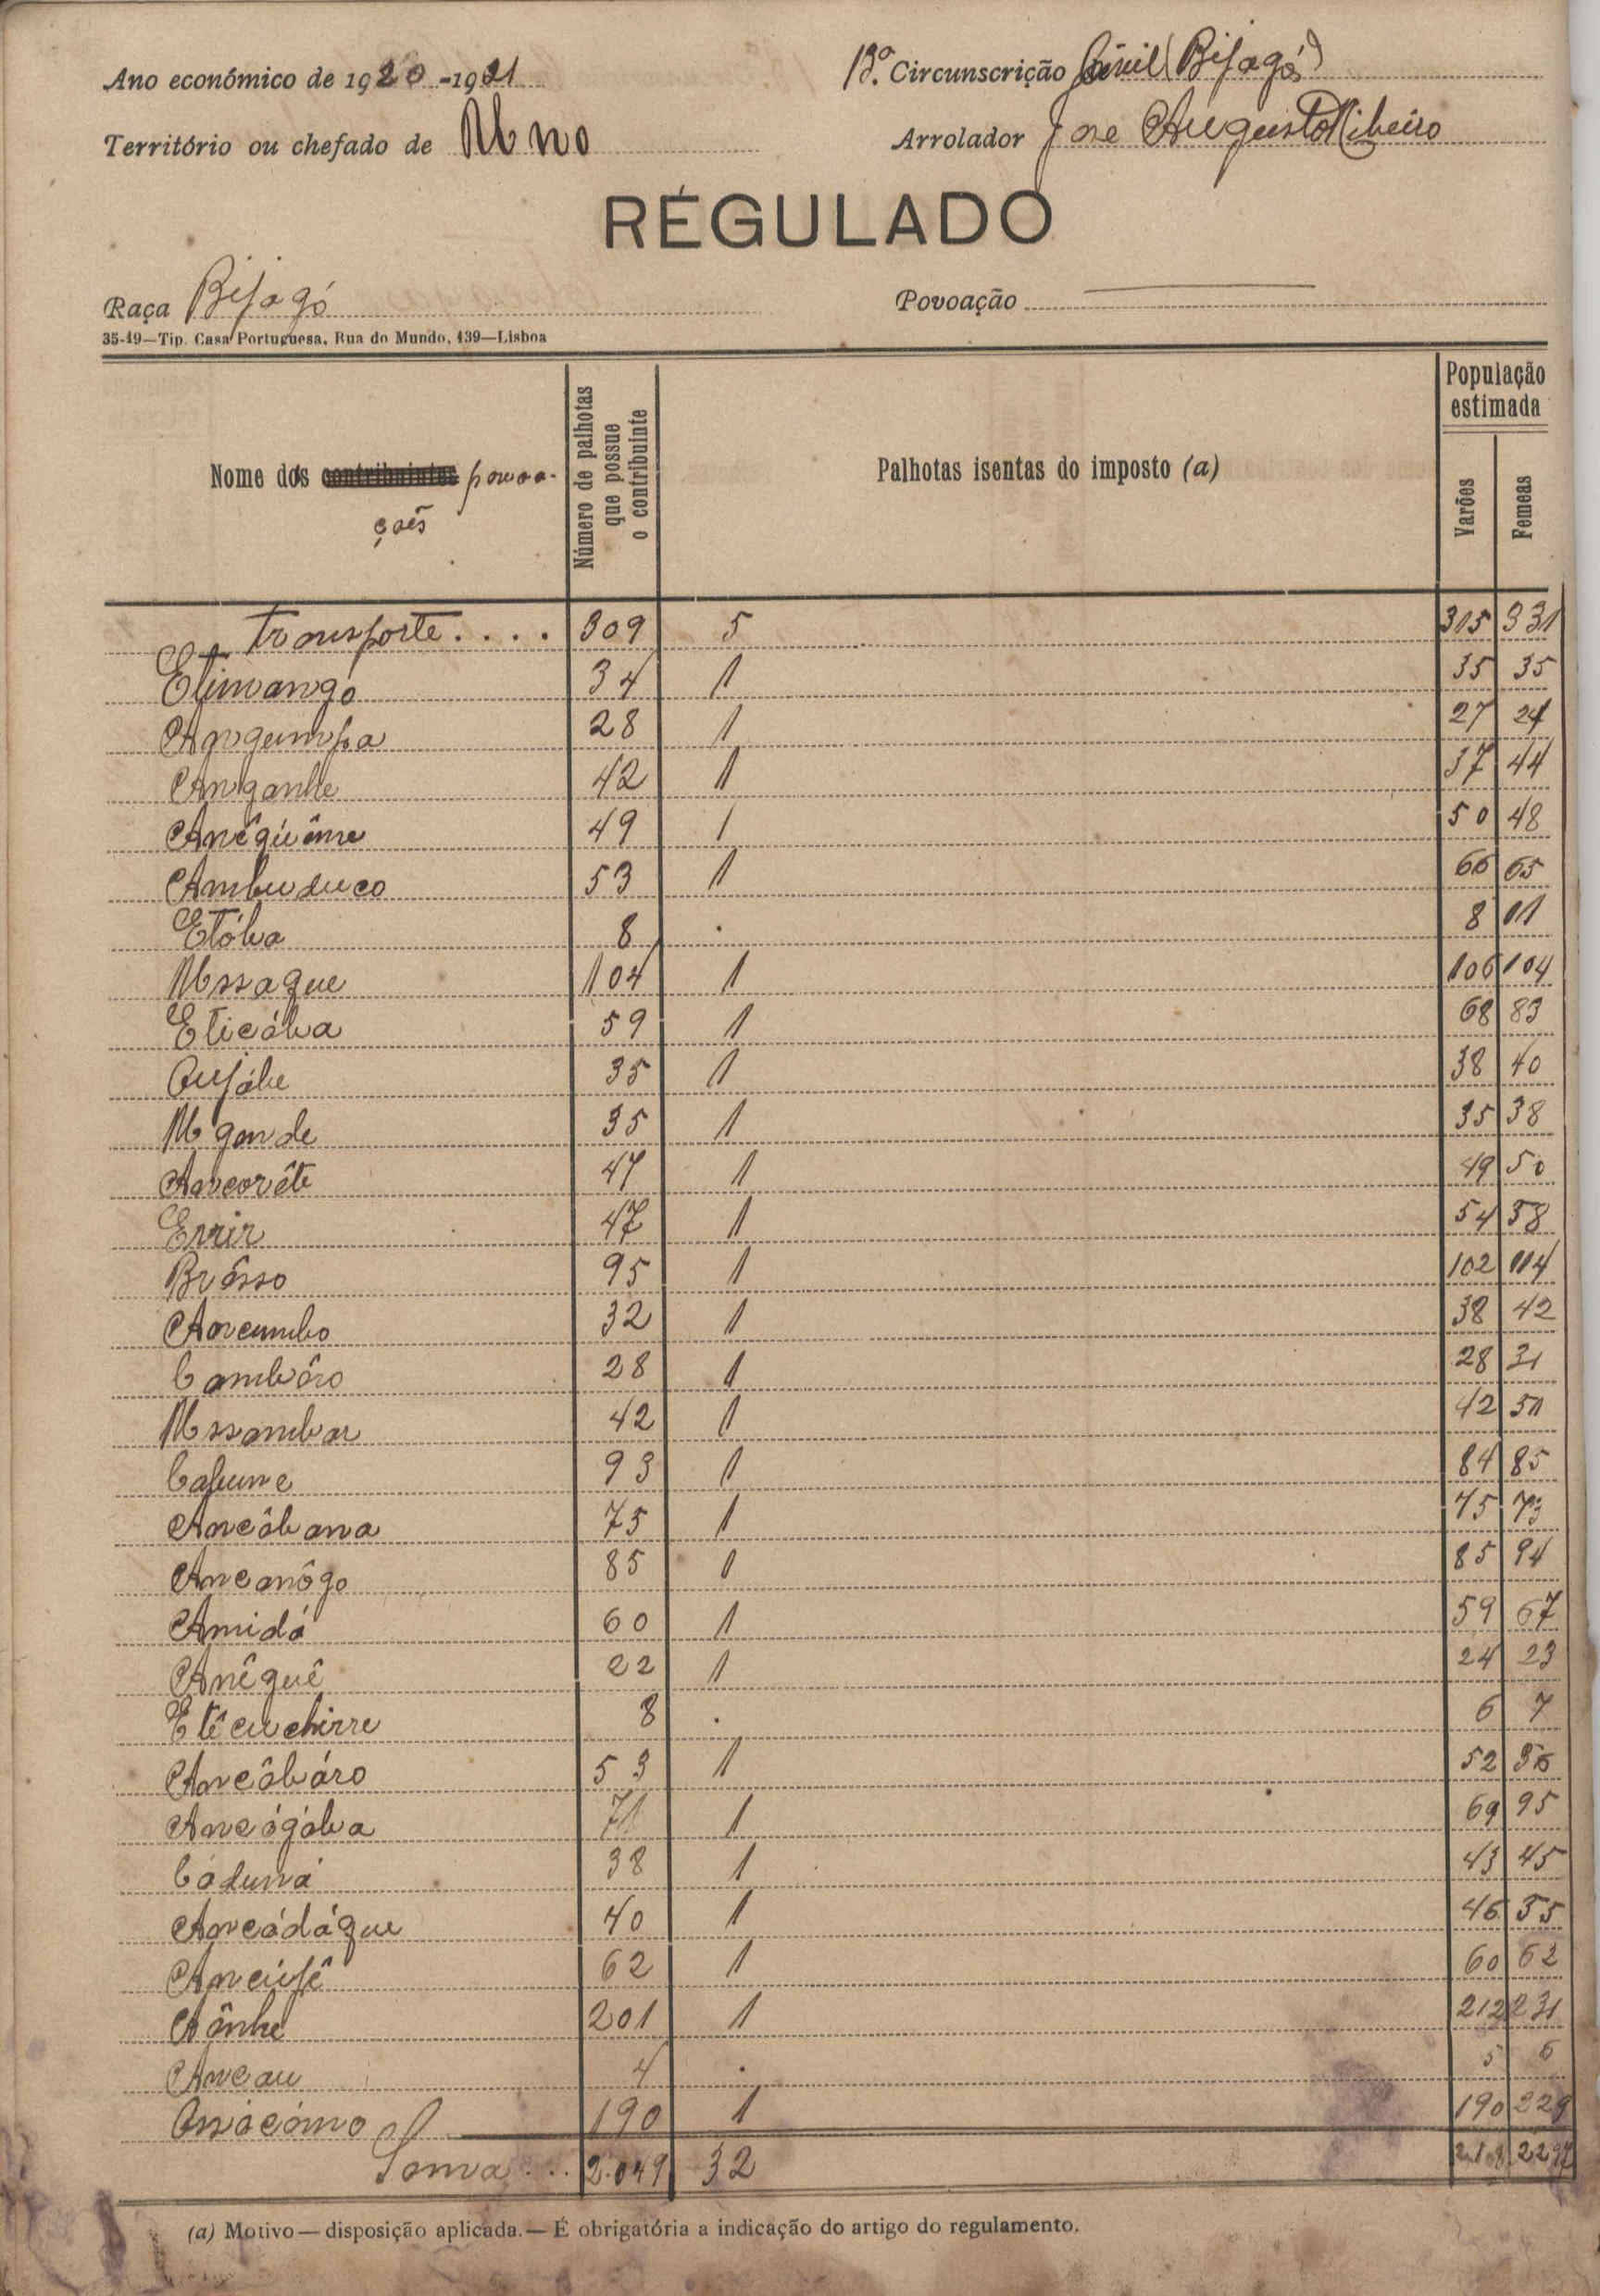 Ano económico de 1920-1921
13ª. Circunscrição Civil (Bijagós)
Território ou chefado de Uno
Arrolador José Augusto Ribeiro
RÉGULADO
Raça Bijagó
Povoação
35-19—Tip. Casa Portuguesa, Rua do Mundo, 139—Lisboa
Nome das povoações
Número de palhotas que possue o contribuinte
Palhotas isentas do imposto (a)
População estimada
Varões
Femeas
Transporte.... 309 5 315 331
Etimango 34 1 35 35
Angumpa 28 1 27 24
Anganhe 42 1 37 44
Anêguême 49 1 50 48
Ambuduco 53 1 66 65
Etóba 8 . 8 11
Ussaque 104 1 106 104
Eticóba 59 1 68 83
Oujóbe 35 1 38 40
Ugande 35 1 35 38
Ancorête 47 1 49 50
Errir 47 1 54 58
Brôsso 95 1 102 114
Ancumbo 32 1 38 42
Cambôro 28 1 28 31
Ussambar 42 1 42 51
Cabune 93 1 84 85
Ancôbana 75 1 75 73
Ancanôgo 85 1 85 94
Amidá 60 1 59 67
Anêguê 22 1 24 23
Etêcuchirre 8 . 6 7
Ancôbáro 53 1 52 56
Ancógóba 71 1 69 95
Códuná 38 1 43 45
Ancádáque 40 1 46 55
Ancúfê 62 1 60 62
Aônhe 201 1 212 231
Ancau 4 . 5 6
Onócómo 190 1 190 229
Soma... 2.049 32
(a) Motivo—disposição aplicada.—É obrigatória a indicação do artigo do regulamento.